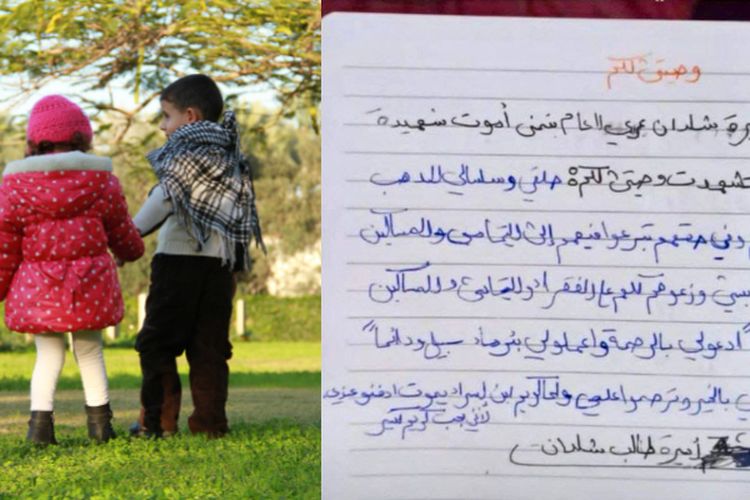 وصيتي لكم
شلدان عمري العام أموت شهيدة
وصيتي لكم حلقي وسلسالي الدهب
وفي حقهم تبرعوا فيهم إلى اليتامى والمساكين
وزعوهم كلهم على الفقراء واليتامى والمساكين
ادعولي بالرحمة واعملولي بئر ماء سبيل ودائماً
بالخير وترحموا علي ولما كريم ابن إسراء يموت ادفنو عندي
لأني بحب كريم كتير
أميرة طالب شلدان